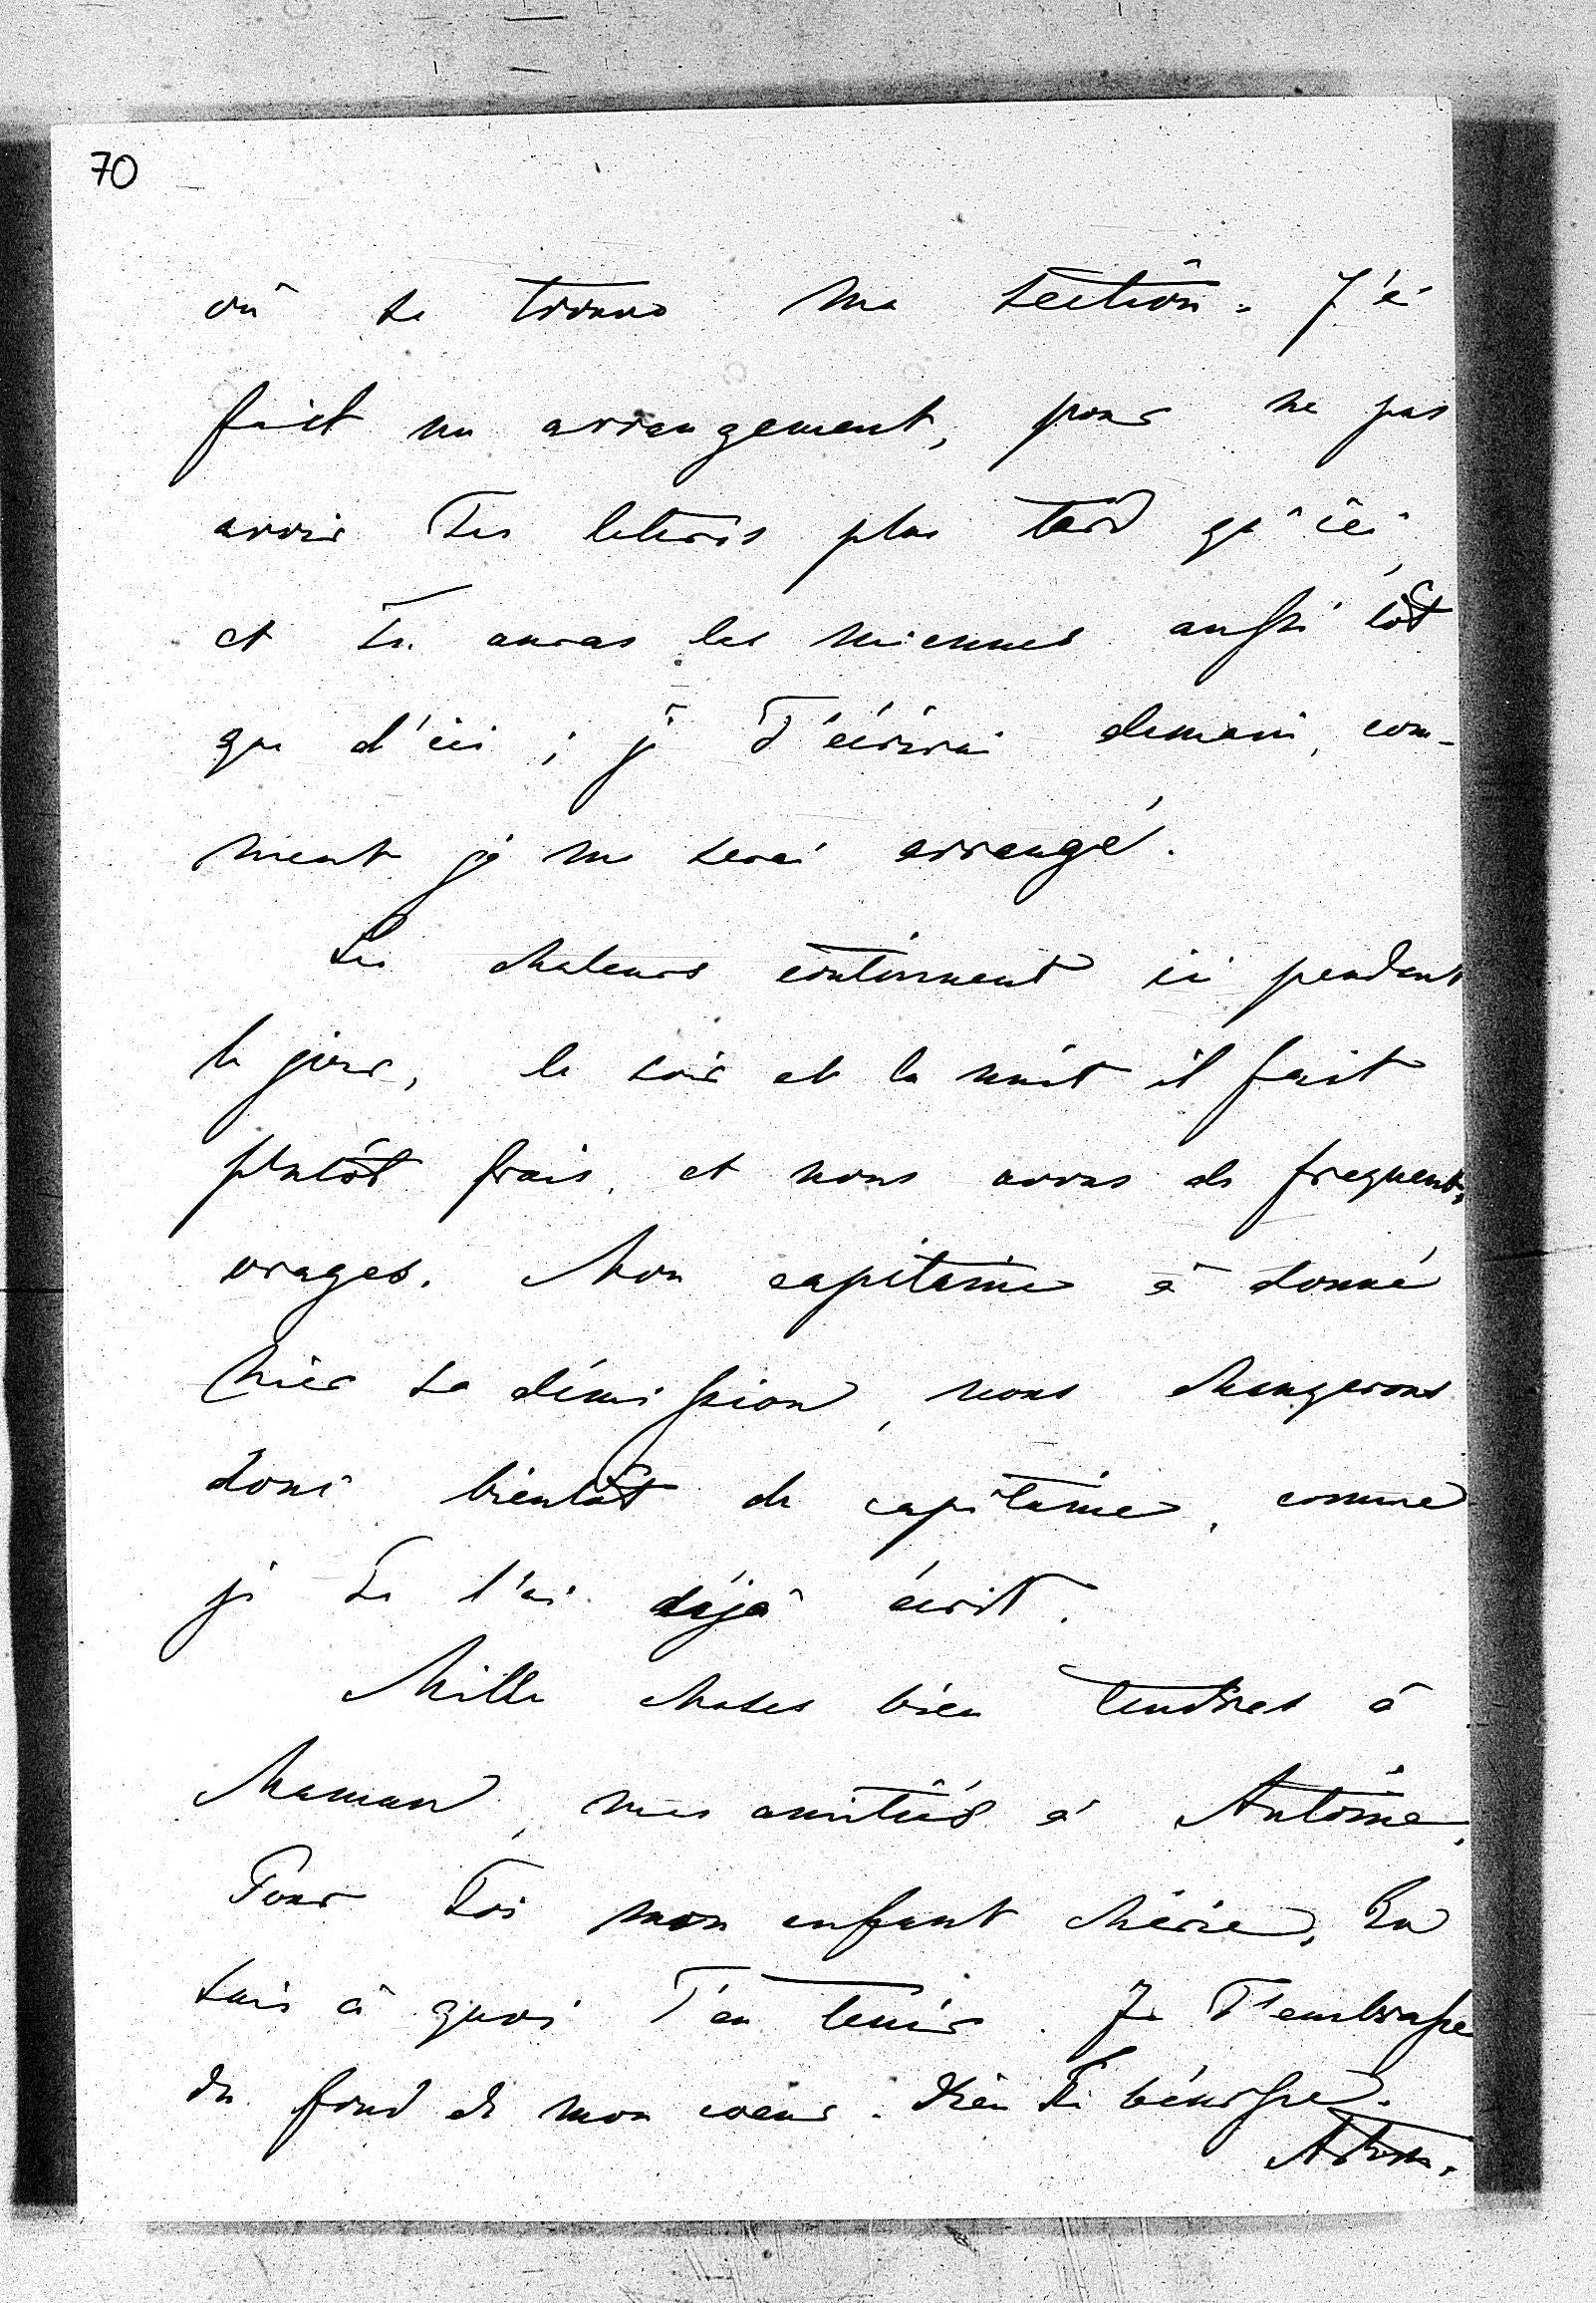 70
où se trouve ma section. J'ai
fait un arrangement, pour ne pas
avoir Tes lettres plus tard qu'ici,
et Tu auras les miennes aussi tôt
que d'ici ; je T'écrirai demain, com-
ment je me serai arrangé.
Les chaleurs continuent ici pendant
le jour, le soir et la nuit il fait
plutôt frais, et nous avons de frequents
orages. Mon capitaine a donné
hier sa démission, nous changerons
donc bientôt de capitaine, comme
je Te l'ai déjà écrit.
Mille choses bien tendres à
Maman, mes amitiés à Antoine,
Pour Toi mon enfant chérie, Tu
sais à quoi T'en tenir. Je T'embrasse
du fond de mon coeur. Dieu Te bénisse.